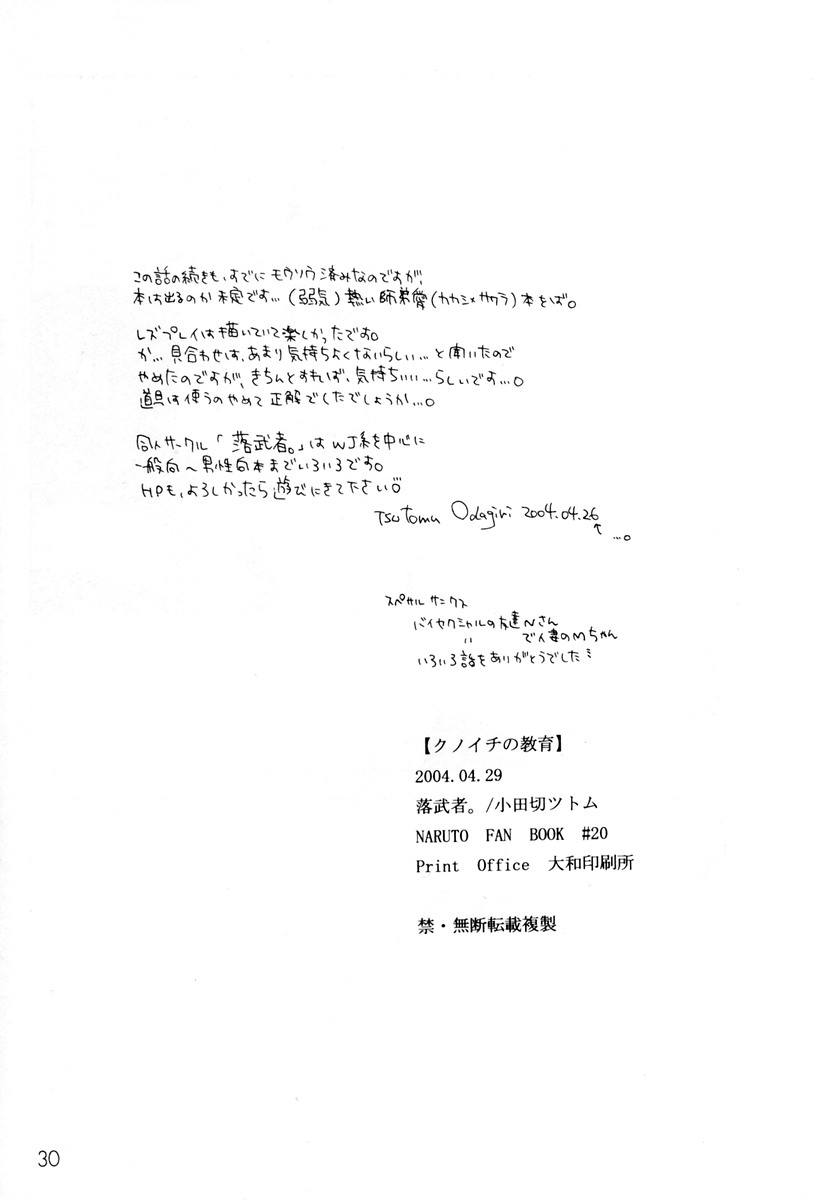 この話の続きも、すでにモウソウ済みなのですが、
本は出るのか未定です…(弱気)熱い師弟愛(カカシ×サクラ)本をば。
レズプレイは描いていて楽しかったです。
か…見合わせは、あまり気持ちよくないらしい…と聞いたので
やめたのですが、きちんとすれば、気持ちいい…らしいです…。
道具は使うのやめて正解でしたでしょうか…。
同人サークル「落武者。」はWJ系を中心に
一般向〜男性向本までいろいろです。
HPも、よろしかったら遊びにきて下さい
Tsutomu Odagiri 2004.04.26
↑
…。
スペサルサンクス
バイセクシャルの友達Nさん
〃 で人妻のMちゃん
いろいろ話をありがとうでした
【クノイチの教育】
2004.04.29
落武者。/小田切ツトム
NARUTO FAN BOOK #20
Print Office 大和印刷所
禁・無断転載複製
30